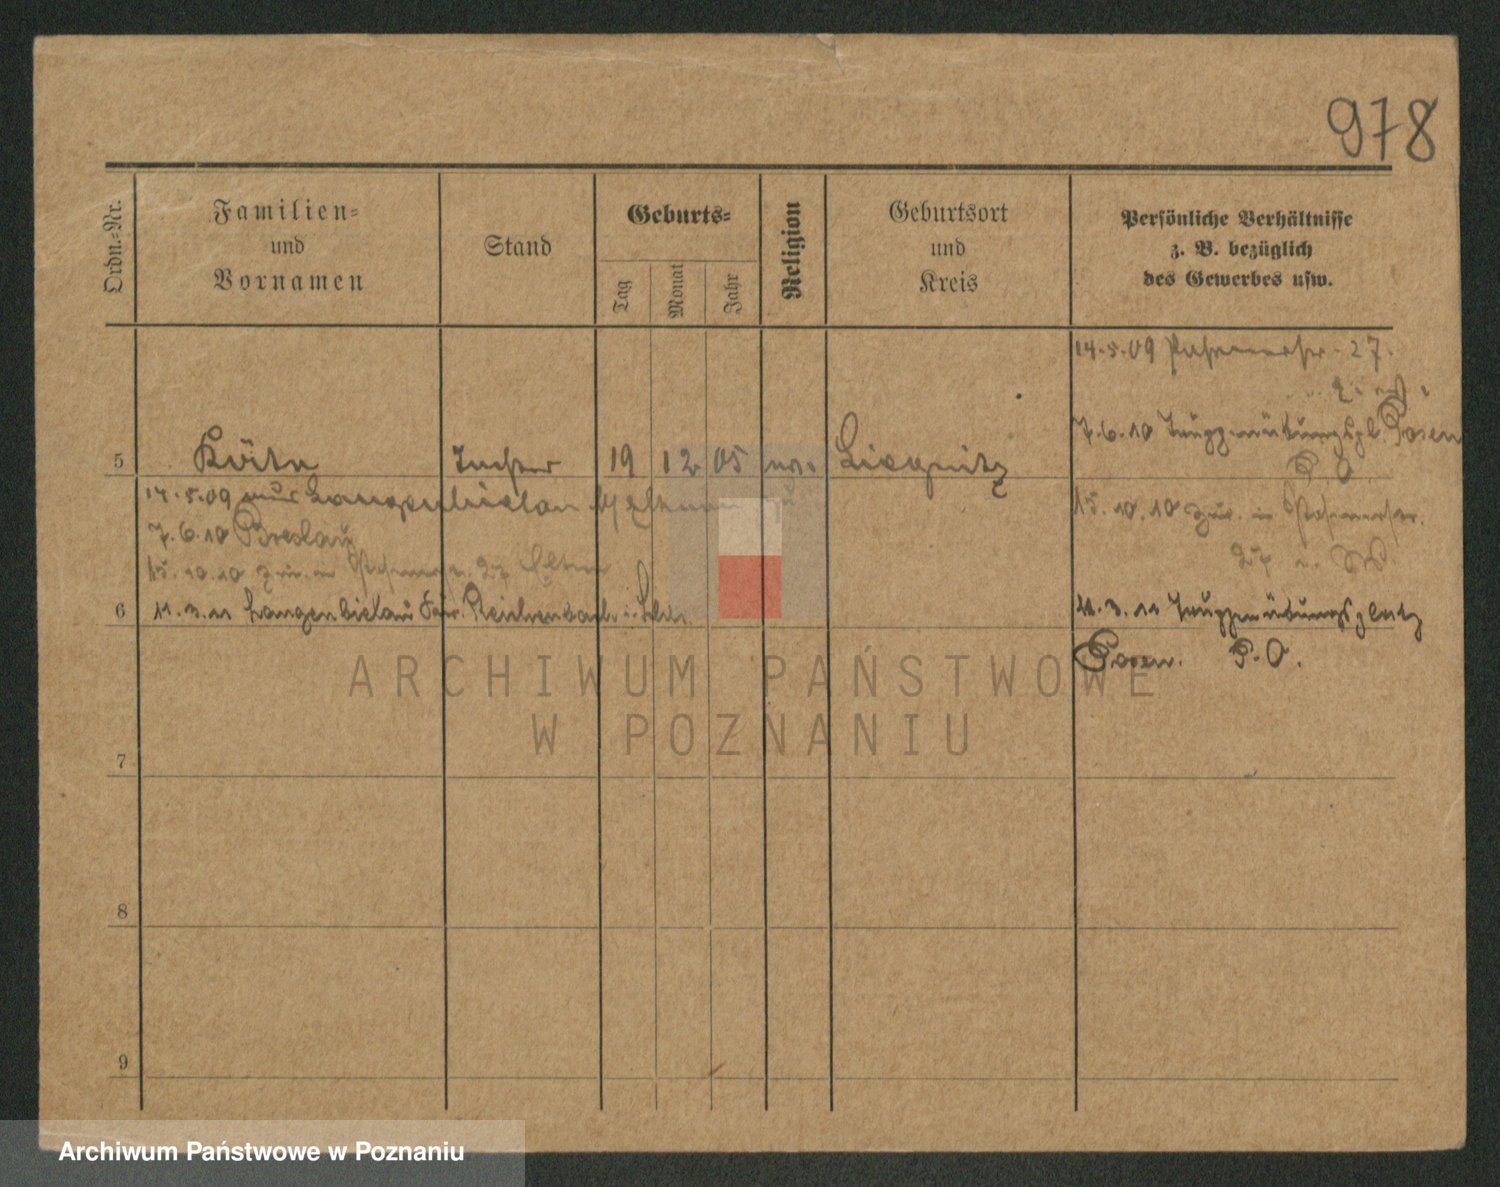 978
Ordn.-Nr.
Familien-
und
Vornamen
Stand
Geburts-
Tag
Monat
Jahr
Religion
Geburtsort
und
Kreis
Persönliche Verhältnisse
z. B. bezüglich
des Gewerbes usw.
14.5.09 27.
7.6.10 Truppenübungspl. Posen
P. O.
5 Tochter 19 12 05 Liegnitz
14.5.09 Langenbielau
7.6.10 Breslau
15.10.10 zur. in
15.10.10 27 Eltern
27
6 11.3.11 Langenbielau Reichenbach i. Schl.
11.3.11 Truppenübungsplatz
Posen. P. O.
ARCHIWUM PAŃSTWOWE
W POZNANIU
7
8
9
Archiwum Państwowe w Poznaniu